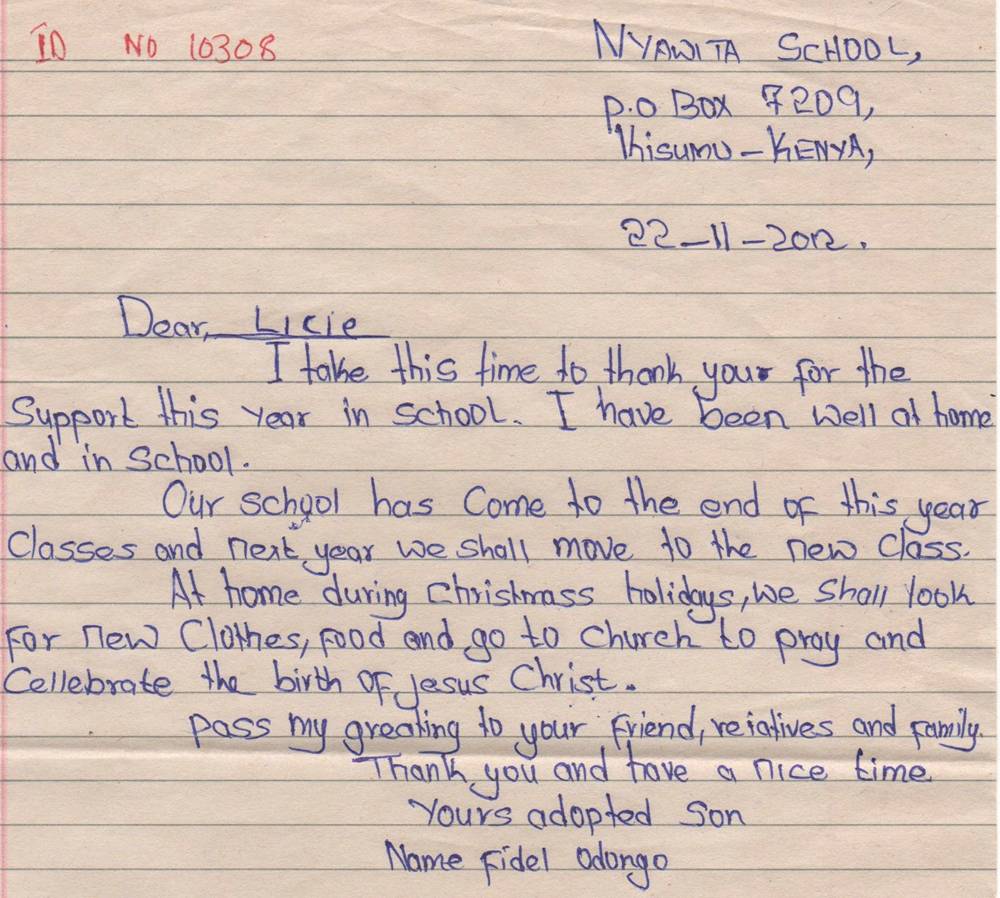 ID NO 10308
NYAWITA SCHOOL,
P.O BOX 7209,
Kisumu - KENYA,
22-11-2012.
Dear, Licie
I take this time to thank your for the
Support this year in school. I have been well at home
and in school.
Our school has Come to the end of this year
Classes and next year we shall move to the new Class.
At home during Christmass holidays, we shall look
For new Clothes, food and go to church to pray and
Cellebrate the birth of Jesus Christ.
Pass my greating to your friend, relatives and family.
Thank you and have a nice time
Yours adopted Son
Name Fidel Odongo